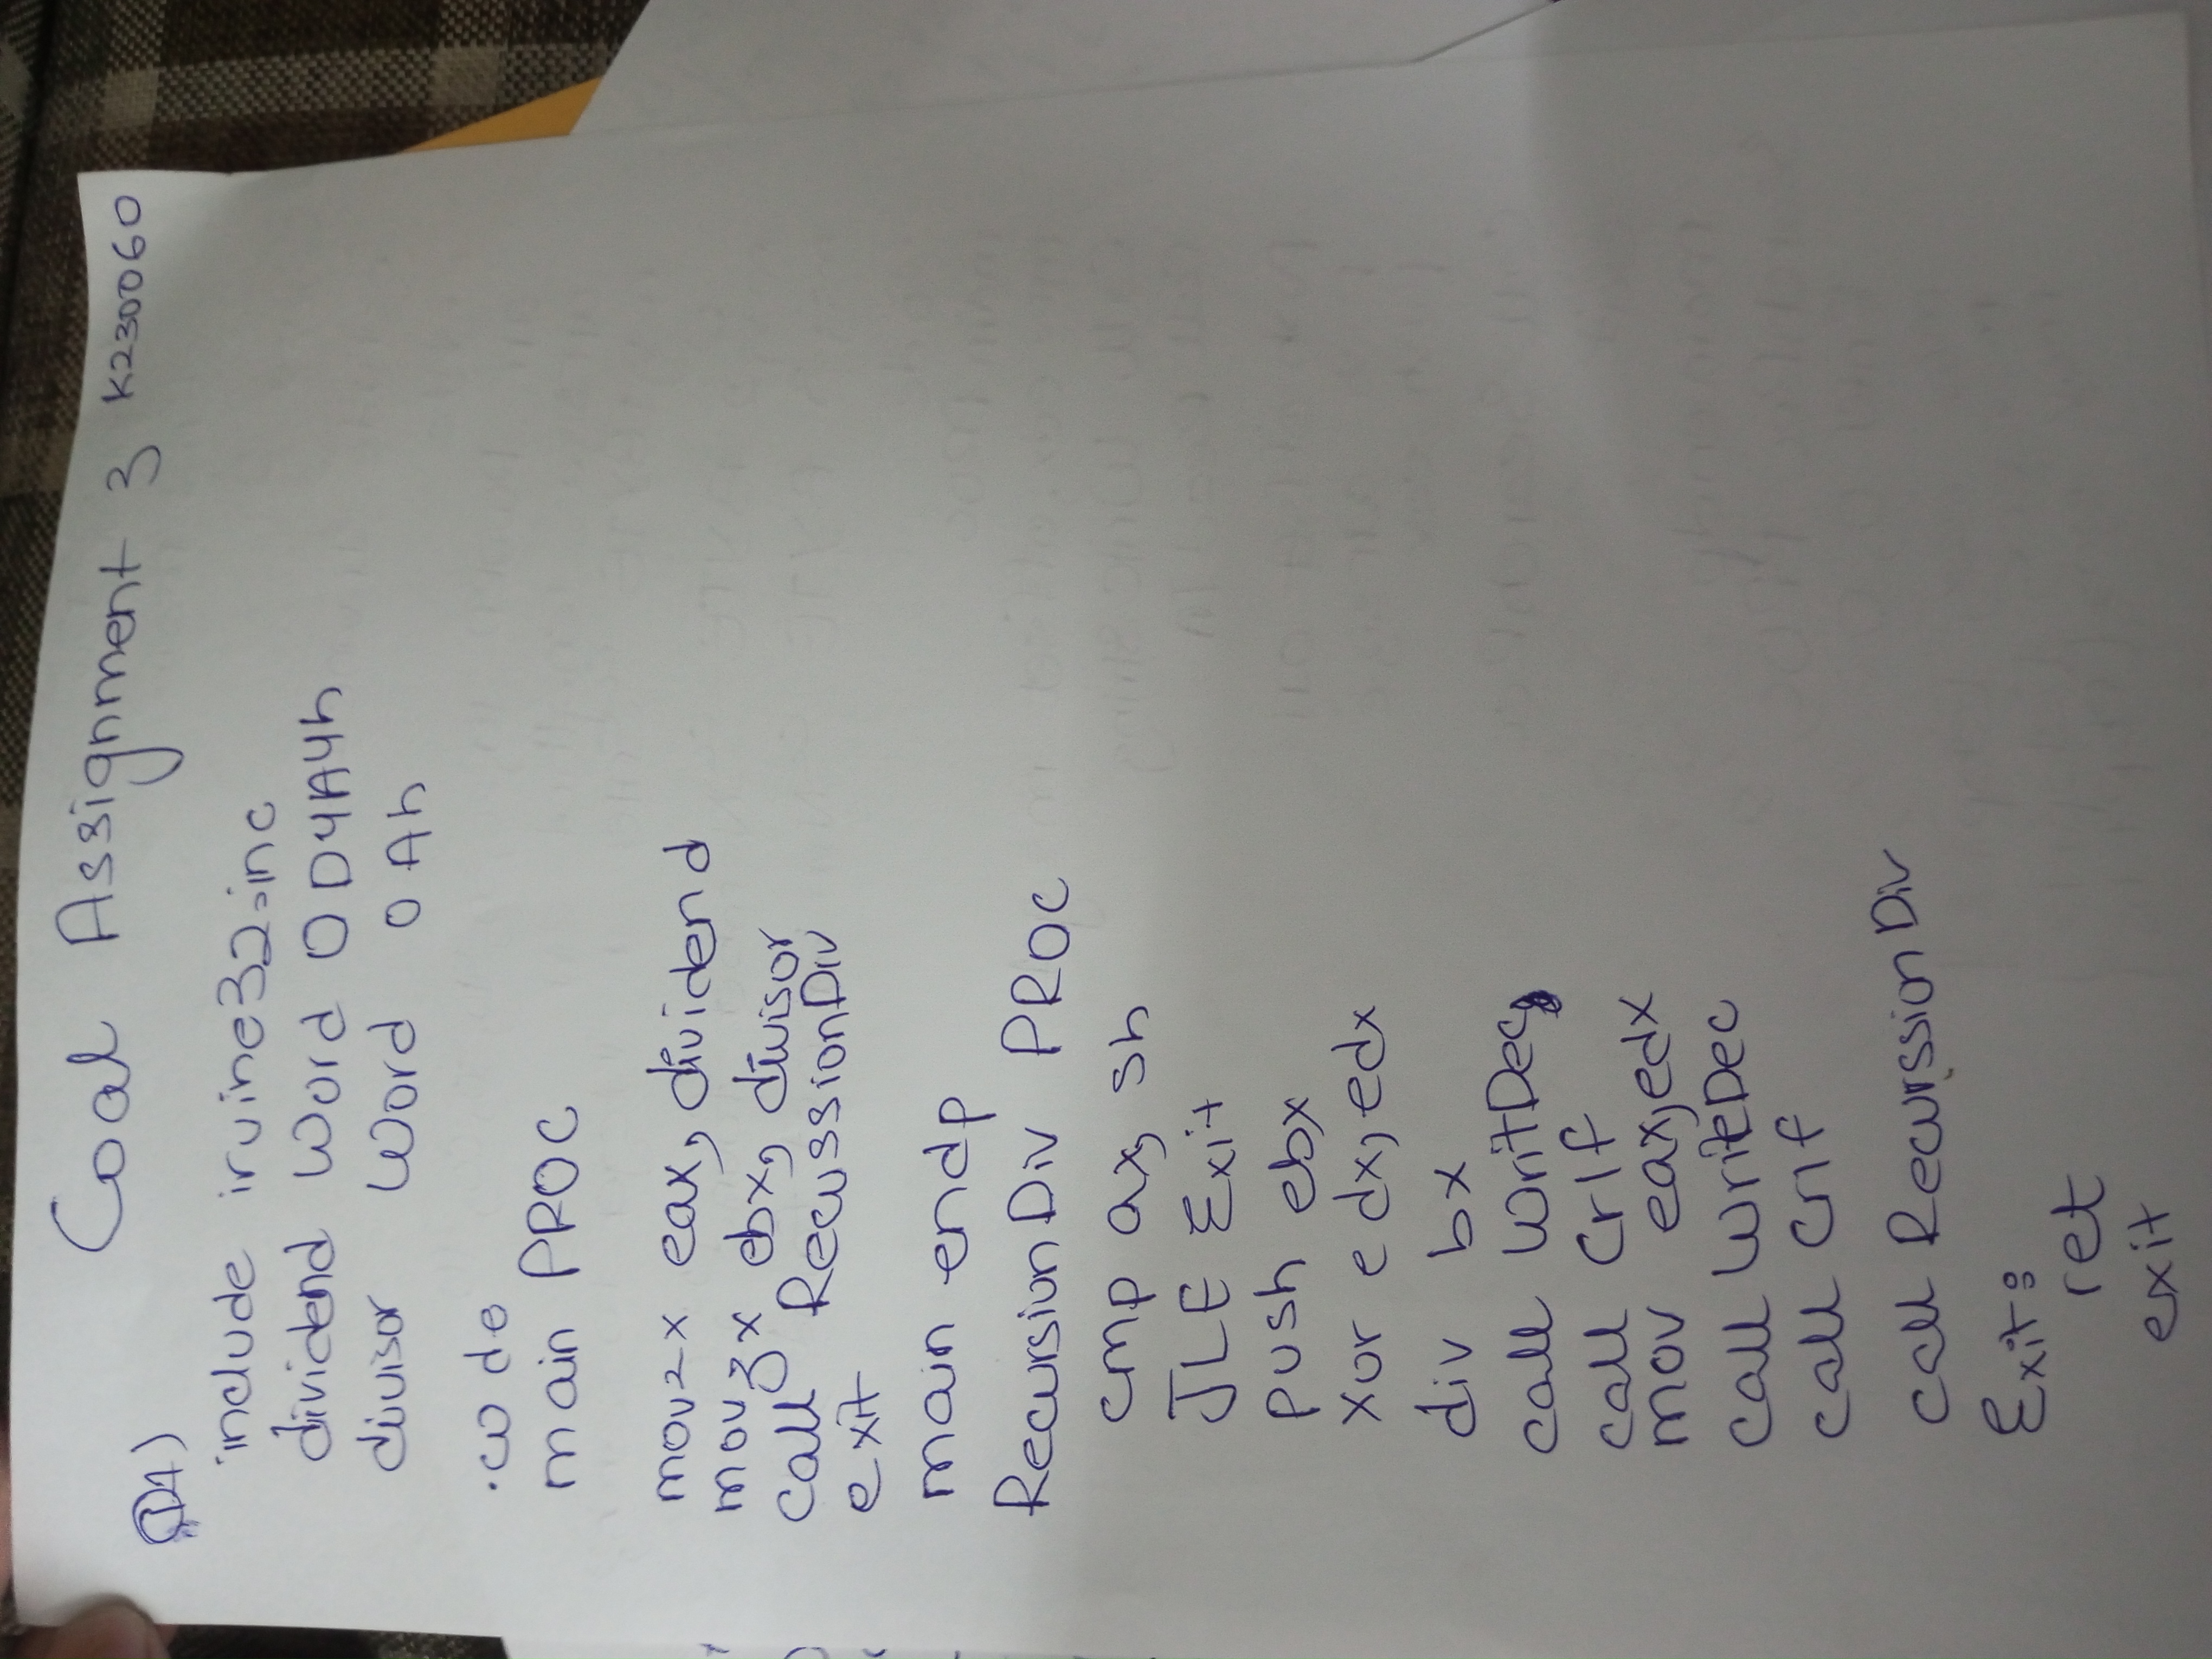 Coal Assignment 3 K230060
Q1)
include irvine32.inc
dividend word 0D4A4h
divisor word 0Ah
.code
main PROC
movzx eax, dividend
movzx ebx, divisor
call RecussionDiv
exit
main endp
RecursionDiv PROC
cmp ax, 5h
JLE Exit
push ebx
xor edx, edx
div bx
call writDec
call Crlf
mov eax, edx
call writeDec
call Crlf
call RecurssionDiv
Exit:
ret
exit